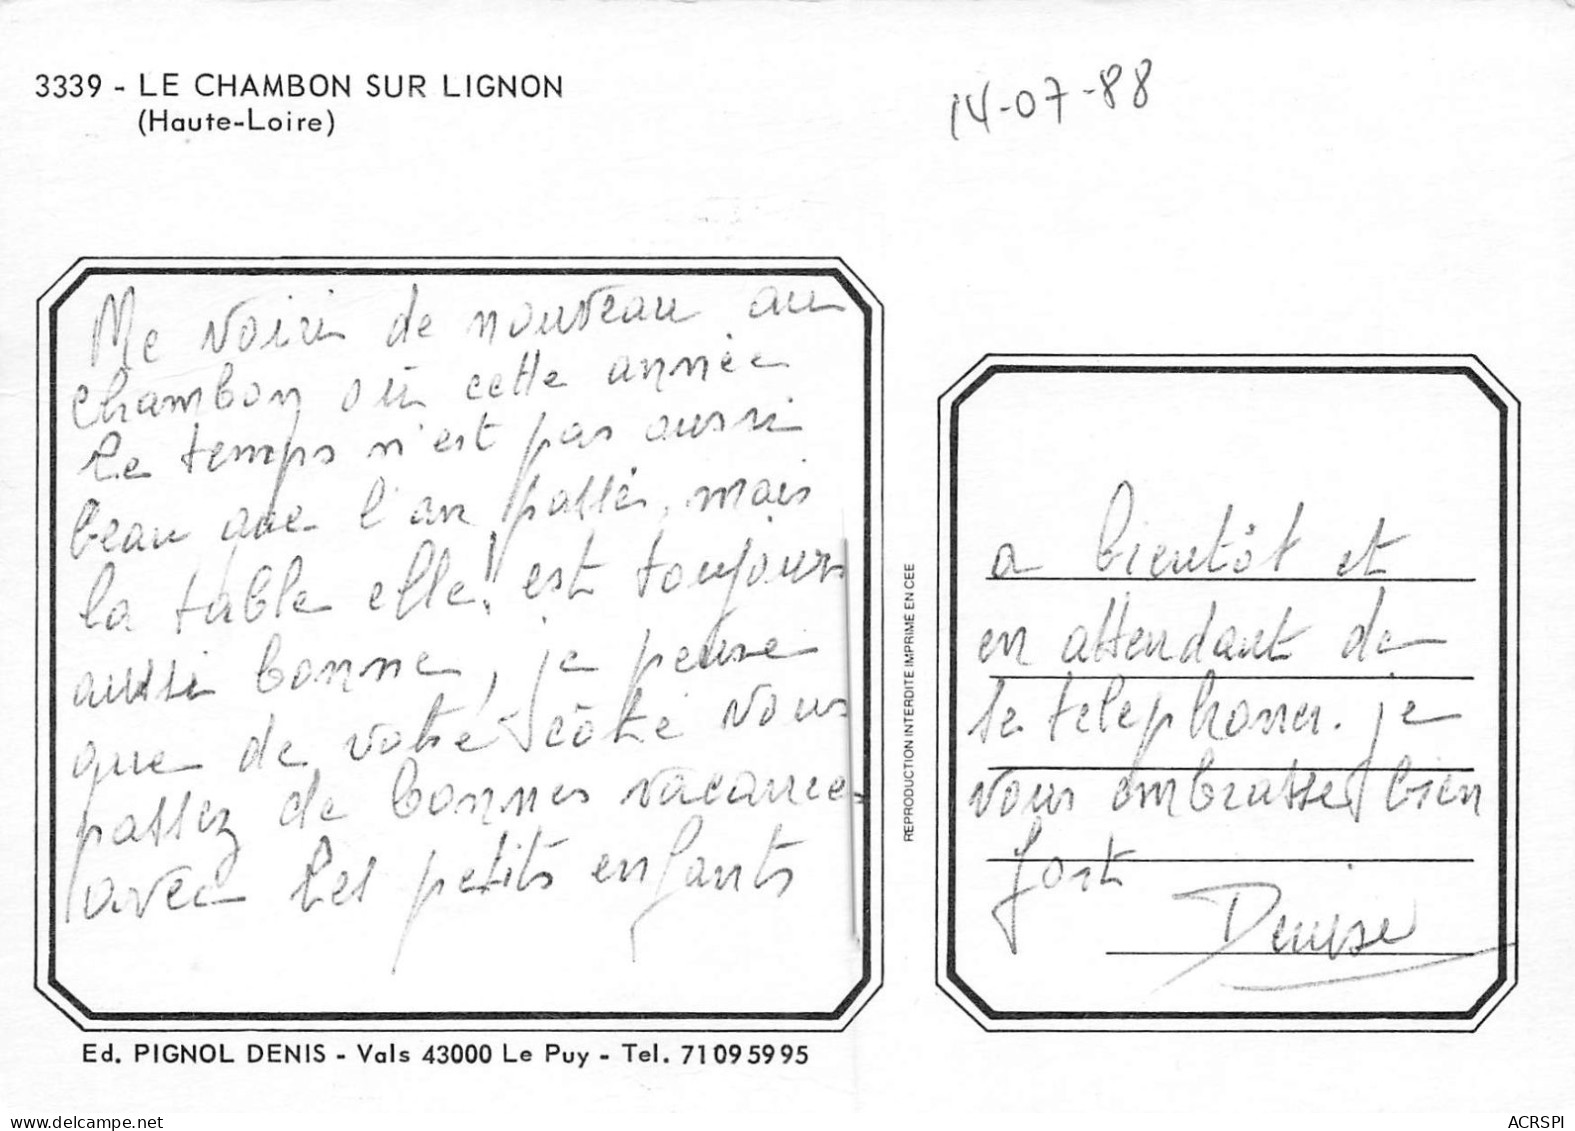 3339 - LE CHAMBON SUR LIGNON
(Haute-Loire)
14-07-88
Me voici de nouveau au
chambon où cette année
le temps n'est pas aussi
beau que l'an passé, mais
la table elle! est toujours
aussi bonne, je pense
que de votre côté vous
passez de bonnes vacances
avec les petits enfants
a bientôt et
en attendant de
se telephoner. je
vous embrasse bien
fort
Denise
REPRODUCTION INTERDITE IMPRIME EN CEE
Ed. PIGNOL DENIS - Vals 43000 Le Puy - Tel. 71095995
delcampe.net
ACRSPI